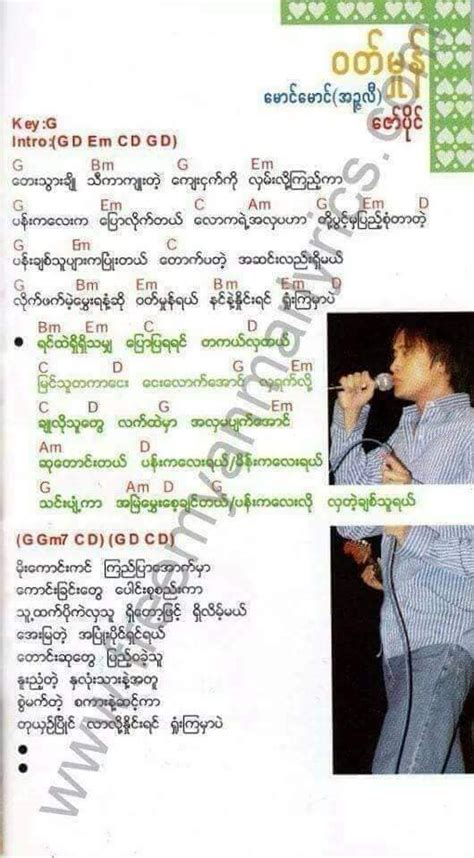 ဝတ်မှုန်
မောင်မောင်(အဥ္စလီ)
ဇော်ပိုင်
Key:G
Intro:(G D Em CD GD)
G Bm G Em
တေးသွားချို သီကာကျူးတဲ့ ကျေးငှက်ကို လှမ်းလို့ကြည့်ကာ
G Em C Am G Em D
ပန်းကလေးက ပြောလိုက်တယ် လောကရဲ့အလှပဟာ တို့ပွင့်မှပြည့်စုံတာတဲ့
G Em C
ပန်းချစ်သူများကပြုံးတယ် တောက်ပတဲ့ အဆင်းလည်းရှိမယ်
G Em Bm Em Bm Em D
လိုက်ဖက်မဲ့မွှေးရနံ့ဆို ဝတ်မှုန်ရယ် နင်နဲ့နှိုင်းရင် ရှုံးကြမှာပဲ
Bm Em C D
ရင်ထဲရှိရှိသမျှ ပြောပြရရင် တကယ်လှတယ်
C D G Em
မြင်သူတကာငေး ငေးလောက်အောင် လှရက်လို့
C D G Em
ချူလိုသူတွေ လက်ထဲမှာ အလှမပျက်အောင်
Am D
ဆုတောင်းတယ် ပန်းကလေးရယ်/စိန်းကလေးရယ်
G Am D G
သင်းပျံ့ကာ အမြဲမွှေးစေ့ချင်တယ်/ပန်းကလေးလို လှတဲ့ချစ်သူရယ်
(G Gm7 CD) (GD CD)
မိုးကောင်းကင် ကြည်ပြာအောက်မှာ
ကောင်းခြင်းတွေ ပေါင်းစုစည်းကာ
သူ့ထက်ပိုကဲလှသူ ရှိတောဖြင့် ရှိလိမ့်မယ်
အေးမြတဲ့ အပြုံးပိုင်ရှင်ရယ်
တောင်းဆုတွေ ပြည့်ဝခဲ့သူ
နူးညံ့တဲ့ နှလုံးသားနဲ့အတူ
စွဲမက်တဲ့ စကားနဲ့ဆင့်ကာ
တုယှဉ်ပြိုင် လာလို့နှိုင်းရင် ရှုံးကြမှာပဲ
www.freemyanmarlyrics.com